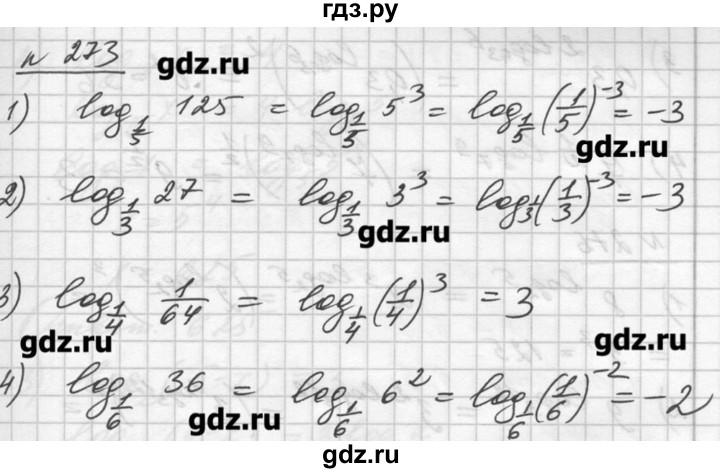 гдз.ру
n 273
gdz.ru
1) log_{1/5} 125 = log_{1/5} 5^3 = log_{1/5} (1/5)^{-3} = -3
gdz.ru
2) log_{1/3} 27 = log_{1/3} 3^3 = log_{1/3} (1/3)^{-3} = -3
gdz.ru
3) log_{1/4} 1/64 = log_{1/4} (1/4)^3 = 3
gdz.ru
gdz.ru
4) log_{1/6} 36 = log_{1/6} 6^2 = log_{1/6} (1/6)^{-2} = -2
gdz.ru
gdz.ru